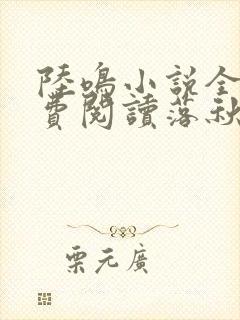 陸鳴小説全
費閱讀落秋
栗元廣